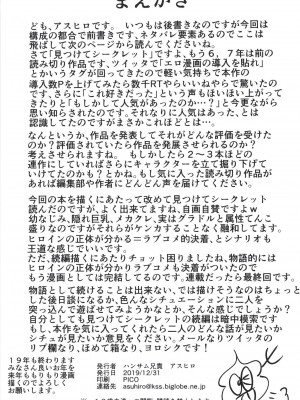 まえがき
ども、アスヒロです。 いつもは後書きなのですが今回は
構成の都合で前書きです、ネタバレ要素あるのでここは
飛ばして次のページから読んでくださいね。
さて「見つけてシークレット」ですよ、もう６，７年は前の
読み切り作品です、ツイッタで「エロ漫画の導入を貼れ」
とかいうタグが回ってきたので軽い気持ちで本作の
導入数Pを上げてみたら数千RTやらいいねやらで驚いた
のです、さらに「これ好きだった」という声もぽいぽい上がって
きたりと「もしかして人気があったのか…？」と今更ながら
思い知らされたのです。それなりに人気はあった、とは
認識してたのですがまさかこれほどと…。
なんというか、作品を発表してそれがどんな評価を受けた
のか？評価されていたら作品を発展させられるのか？
考えさせられますね。 もしかしたら２～３本ほどの
連作にしていればさらにキャラクターを立て掘り下げて
いけてたのかも？とかね。もし気に入った読み切り作品が
あれば編集部や作者にどんどん声を届けてください。
今回の本を描くにあたって改めて見つけてシークレット
読んだのですが、よく出来てますね、自画自賛ですよｗ
幼なじみ、隠れ巨乳、メカクレ、実はグラドルと属性てんこ
盛りなのですがそれらがケンカすることなく融和してます。
ヒロインの正体が分かる＝ラブコメ的決着、とシナリオも
王道な感じでいいです。
ただ、続編描くにあたりチョット困りましたね、物語的には
ヒロインの正体が分かるのもラブコメも決着がついたので
もう漫画としては完結してるのです。連載だったら最終回です。
物語として続けることは出来ない、では描けそうなのはちょっと
した後日談になるか、色んなシチュエーションに二人を
突っ込んで遊ばせてみようかなとか、そんな感じでしょうか？
自分としても見つけてシークレットの続編は暗中模索です
もし、本作を気に入ってくれたら二人のどんな話が見たいか
シチュが見たいか意見ください。メールなりツイッタの
リプ欄なり、ほめて箱なり、ヨロシクです！
１９年も終わります
みなさん良いお年を
来年ももりもり漫画
描くのでよろしく
お願いします。
発行者 ハンサム兄貴 アスヒロ
発行日 2019/12/31
印刷 PICO
連絡先 asuhiro@kss.biglobe.ne.jp